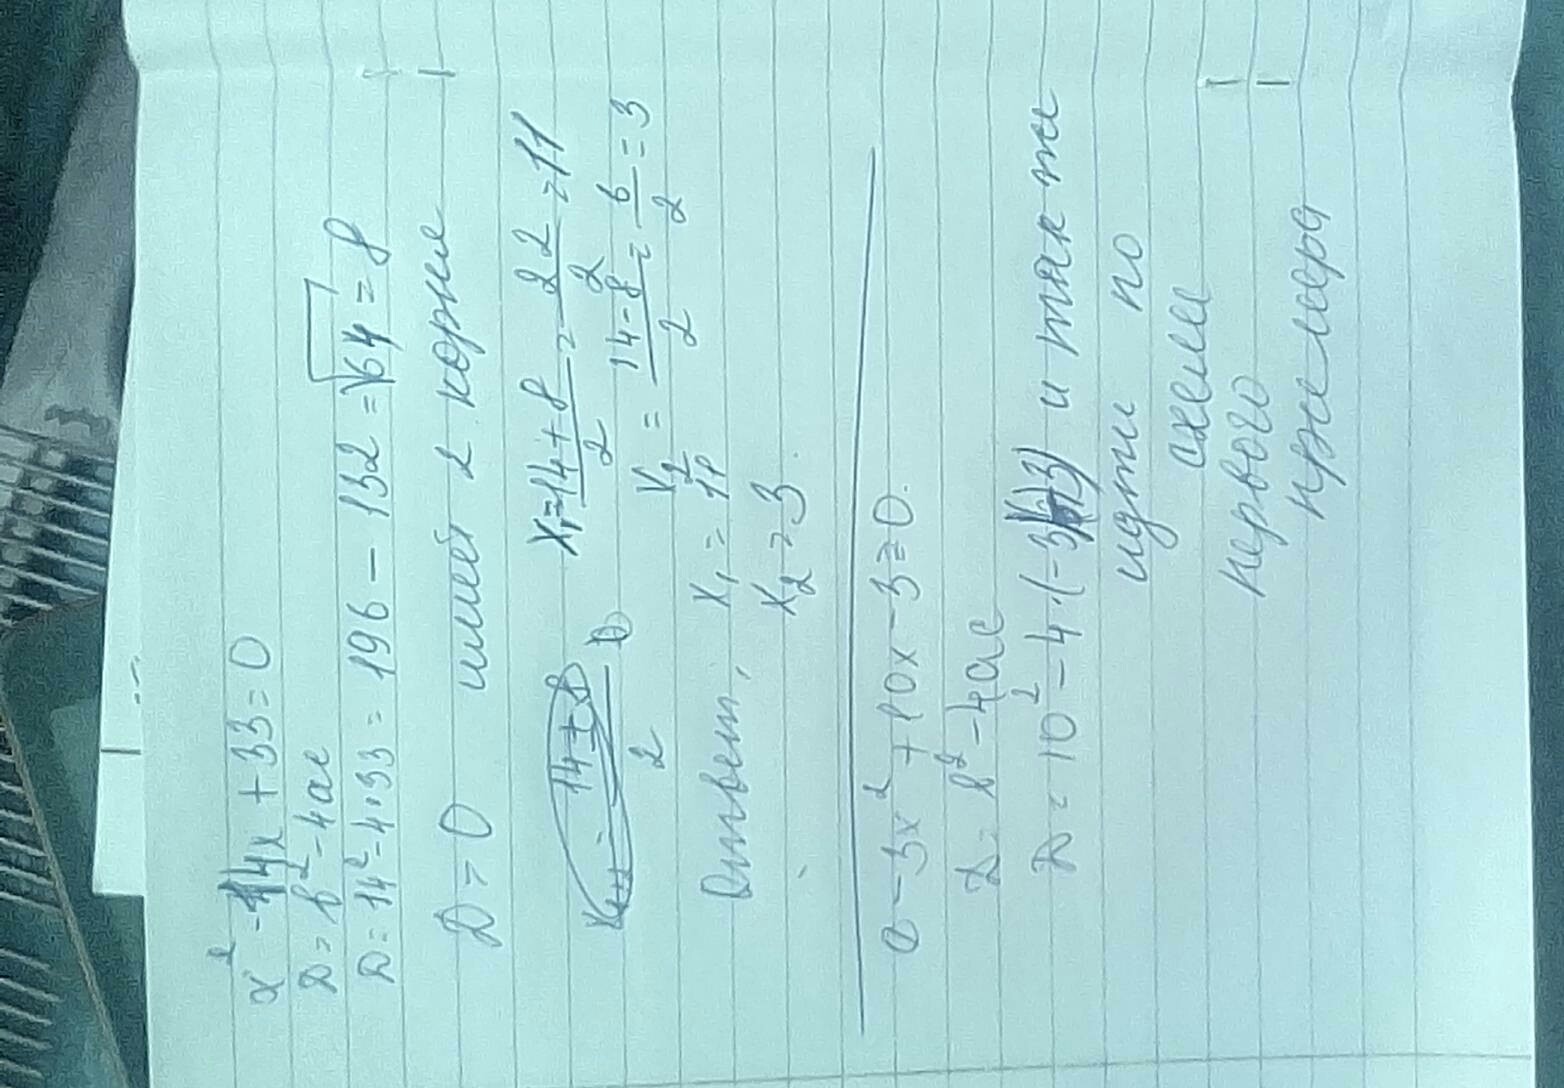 x² - 14x + 33 = 0
D = b² - 4ac
D = 14² - 4·33 = 196 - 132 = √64 = 8
D = 0 имеет 2 корне
x₁ = 14 + 8 / 2 = 22 / 2 = 11
x₂ = 14 - 8 / 2 = 6 / 2 = 3
Ответ: x₁ = 11
x₂ = 3.
0 - 3x² + 10x - 3 = 0.
D = b² - 4ac
D = 10² - 4·(-3)(-3) и так же
идти по
схеме
первого
примера